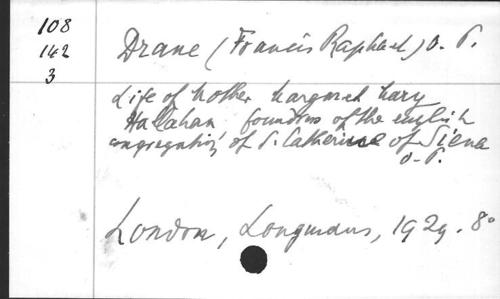 108
142
3
Drane (Francis Raphael) O. P.
Life of Mother Margaret Mary
Hallahan foundress of the english
congregation of S. Catherine of Siena
O. P.
London, Longmans, 1929. 8°